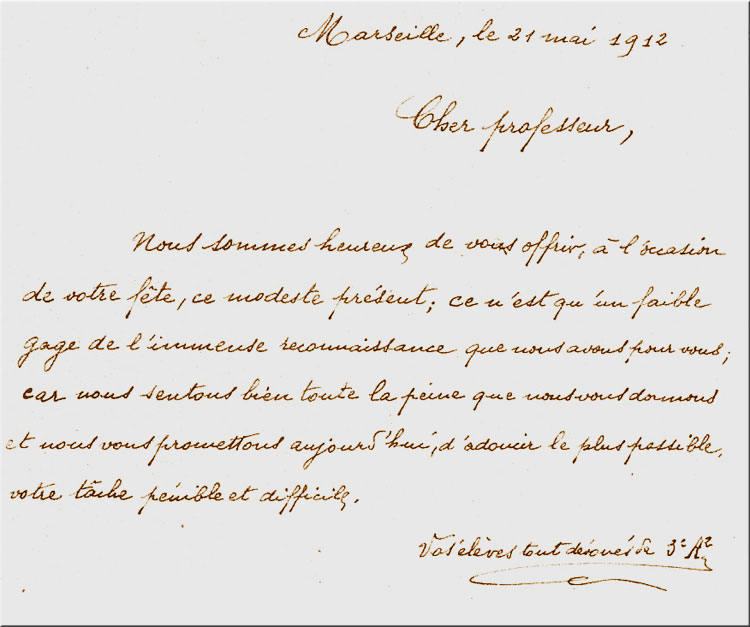 Marseille, le 21 mai 1912
Cher professeur,
Nous sommes heureux de vous offrir, à l'occasion
de votre fête, ce modeste présent; ce n'est qu'un faible
gage de l'immense reconnaissance que nous avons pour vous;
car nous sentons bien toute la peine que nous vous donnons
et nous vous promettons aujourd'hui, d'adoucir le plus possible,
votre tâche pénible et difficile.
Vos élèves tout dévoués de 3e A2